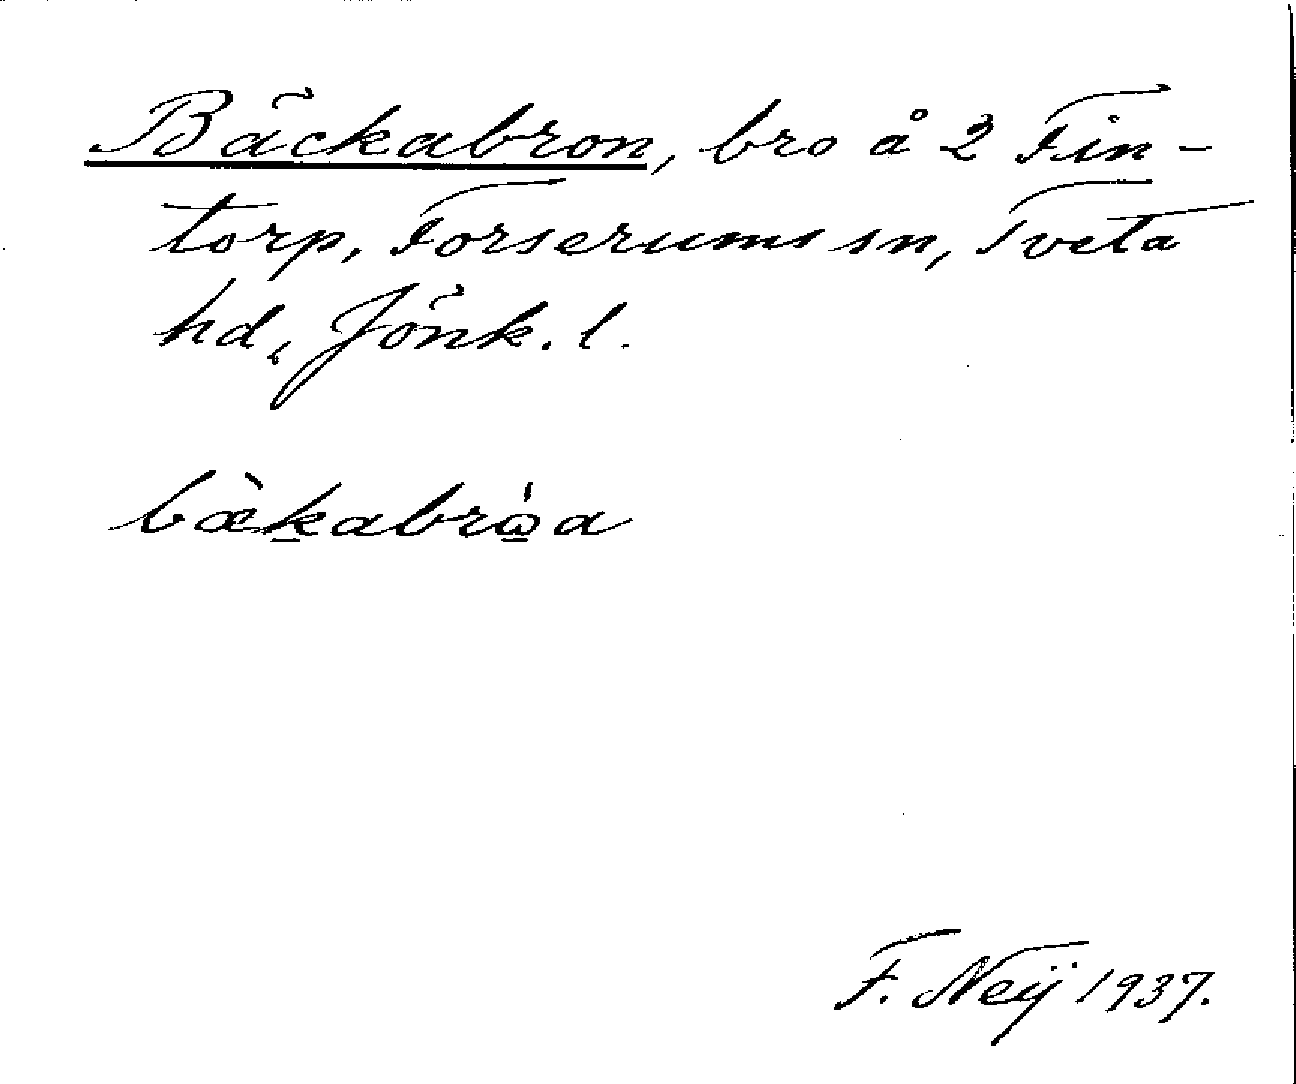 Bäckabron, bro å 2 Fin-
torp, Forserums sn, Tveta
hd, Jönk. l.
bæ̀k̲abrώ̲a
F. Neij 1937.